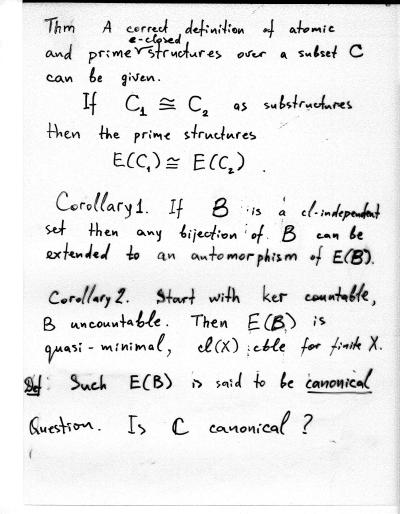 Thm A correct definition of atomic
e-closed
and prime structures over a subset C
can be given.
If C₁ ≅ C₂ as substructures
then the prime structures
E(C₁) ≅ E(C₂).
Corollary 1. If B is a cl-independent
set then any bijection of B can be
extended to an automorphism of E(B).
Corollary 2. Start with ker countable,
B uncountable. Then E(B) is
quasi-minimal, cl(X) cble for finite X.
Def: Such E(B) is said to be canonical
Question. Is C canonical?